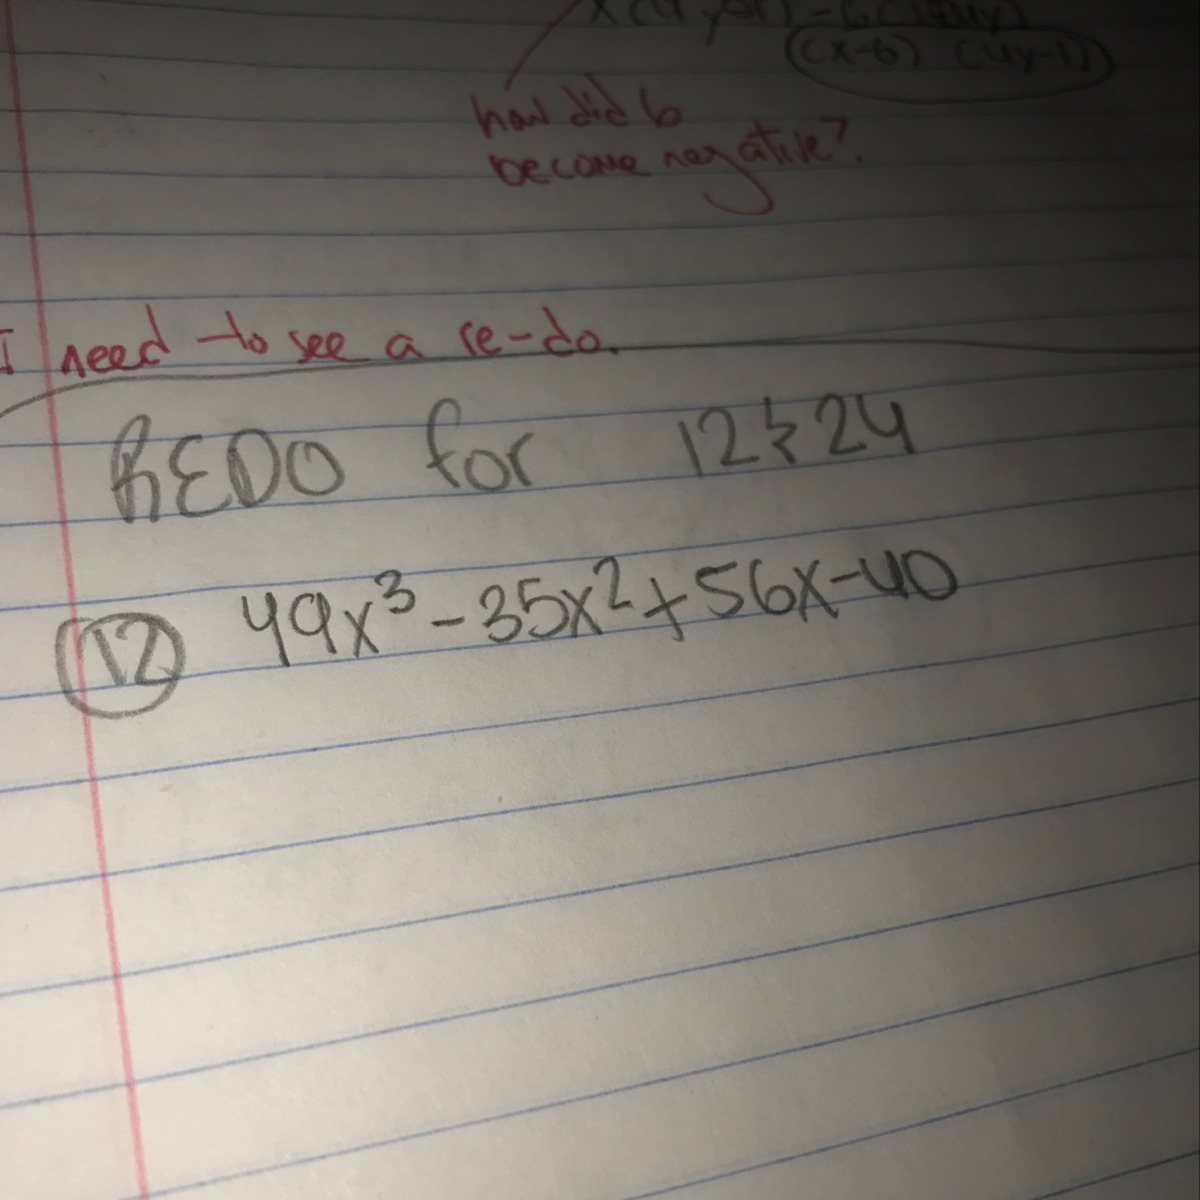 (x-6) (4y-1)
how did 6
become negative?
I need to see a re-do.
REDO for 12 & 24
12 49x³ - 35x² + 56x - 40